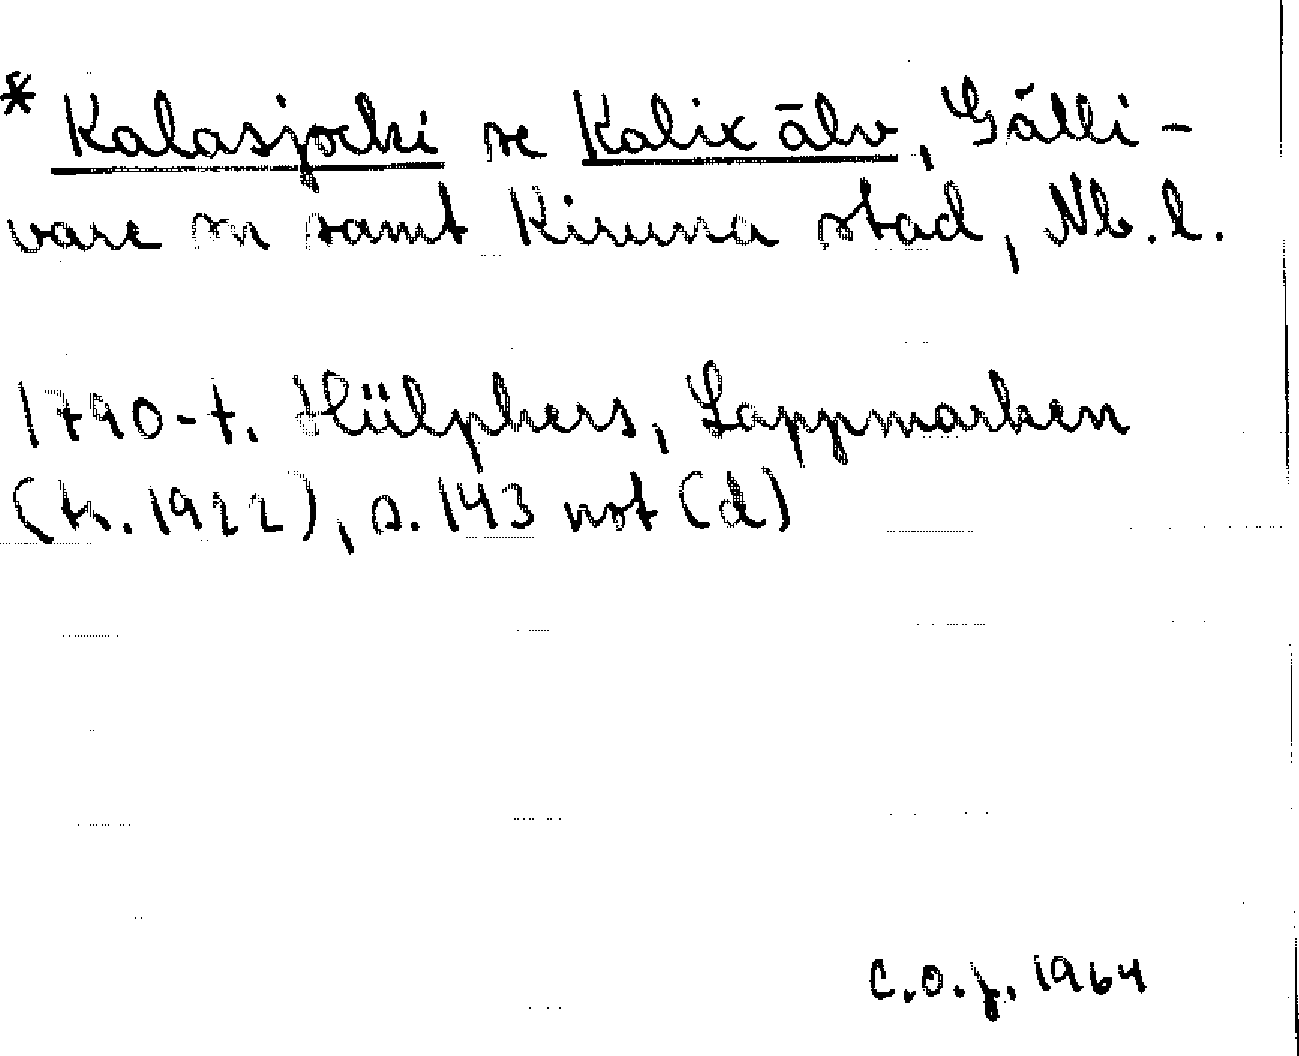 * Kalasjocki se Kalix älv, Gälli-
vare sn samt Kiruna stad, Nb.l.
1790-t. Hülphers, Lappmarken
(tr. 1922), s. 143 not (d)
C.O.J. 1964